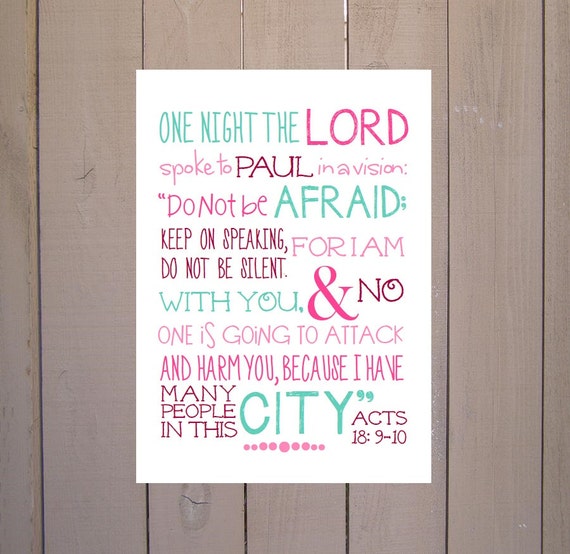 ONE NIGHT THE LORD
spoke to PAUL in a vision:
"Do Not be AFRAID;
KEEP ON SPEAKING,
DO NOT BE SILENT.
FOR I AM
WITH YOU, & NO
ONE iS GOING TO ATTACK
AND HARM YOU, BECAUSE I HAVE
MANY
PEOPLE
IN THIS
CITY"
ACTS
18: 9-10